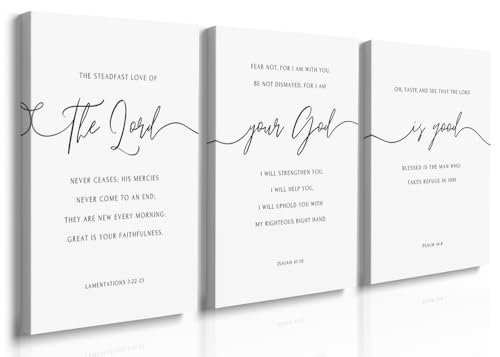 THE STEADFAST LOVE OF
The Lord
NEVER CEASES; HIS MERCIES
NEVER COME TO AN END;
THEY ARE NEW EVERY MORNING;
GREAT IS YOUR FAITHFULNESS.
LAMENTATIONS 3:22-23
FEAR NOT, FOR I AM WITH YOU,
BE NOT DISMAYED, FOR I AM
your God
I WILL STRENGTHEN YOU,
I WILL HELP YOU,
I WILL UPHOLD YOU WITH
MY RIGHTEOUS RIGHT HAND.
ISAIAH 41:10
OH, TASTE AND SEE THAT THE LORD
is good
BLESSED IS THE MAN WHO
TAKES REFUGE IN HIM
PSALM 34:8